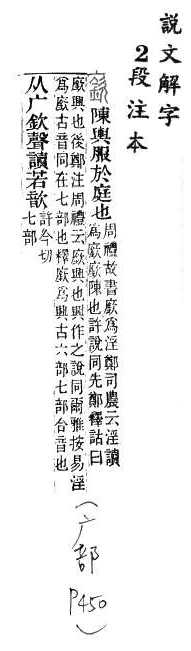 說文解字
2段注本
廞陳輿服於庭也
周禮故書廞為淫鄭司農云淫讀
為廞廞陳也許說同先鄭釋詁曰
廞興也後鄭注周禮云廞興也興作之說同爾雅按易淫
為廞古音同在七部也釋廞為興古六部七部合音也
从广欽聲讀若歆
許今切
七部
(广部 P450)